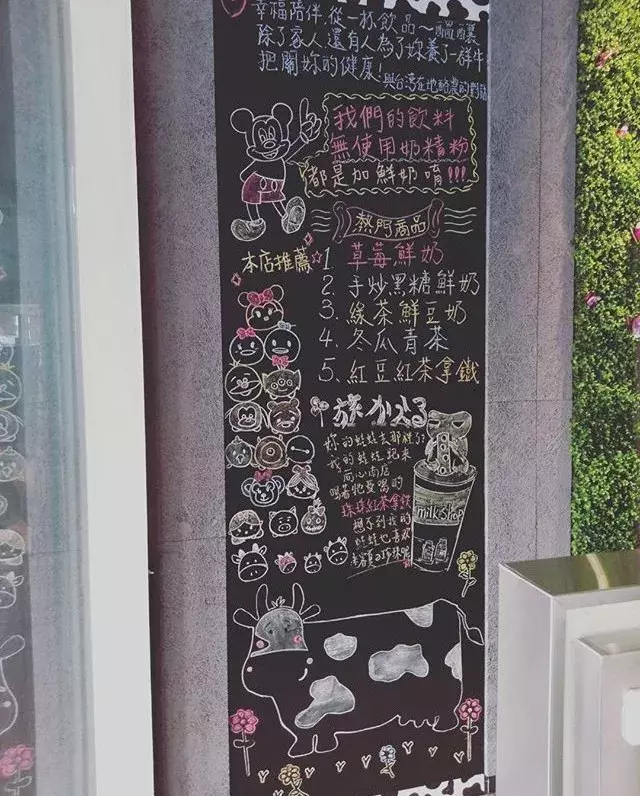 幸福陪伴,從一杯飲品～
除了家人,還有人為了妳養了一群牛
把關妳的健康!
與台灣在地酪農的對話
我們的飲料
無使用奶精粉
都是加鮮奶唷!!!
熱門商品
本店推薦
1. 草莓鮮奶
2. 手炒黑糖鮮奶
3. 綠茶鮮豆奶
4. 冬瓜青茶
5. 紅豆紅茶拿鐵
旅かえる
妳的蛙蛙去那裡了?
我的蛙蛙跑來
同心商店
喝著牠愛喝的
珠珠紅茶拿鐵
想不到我的
蛙蛙也喜歡
milk Shop